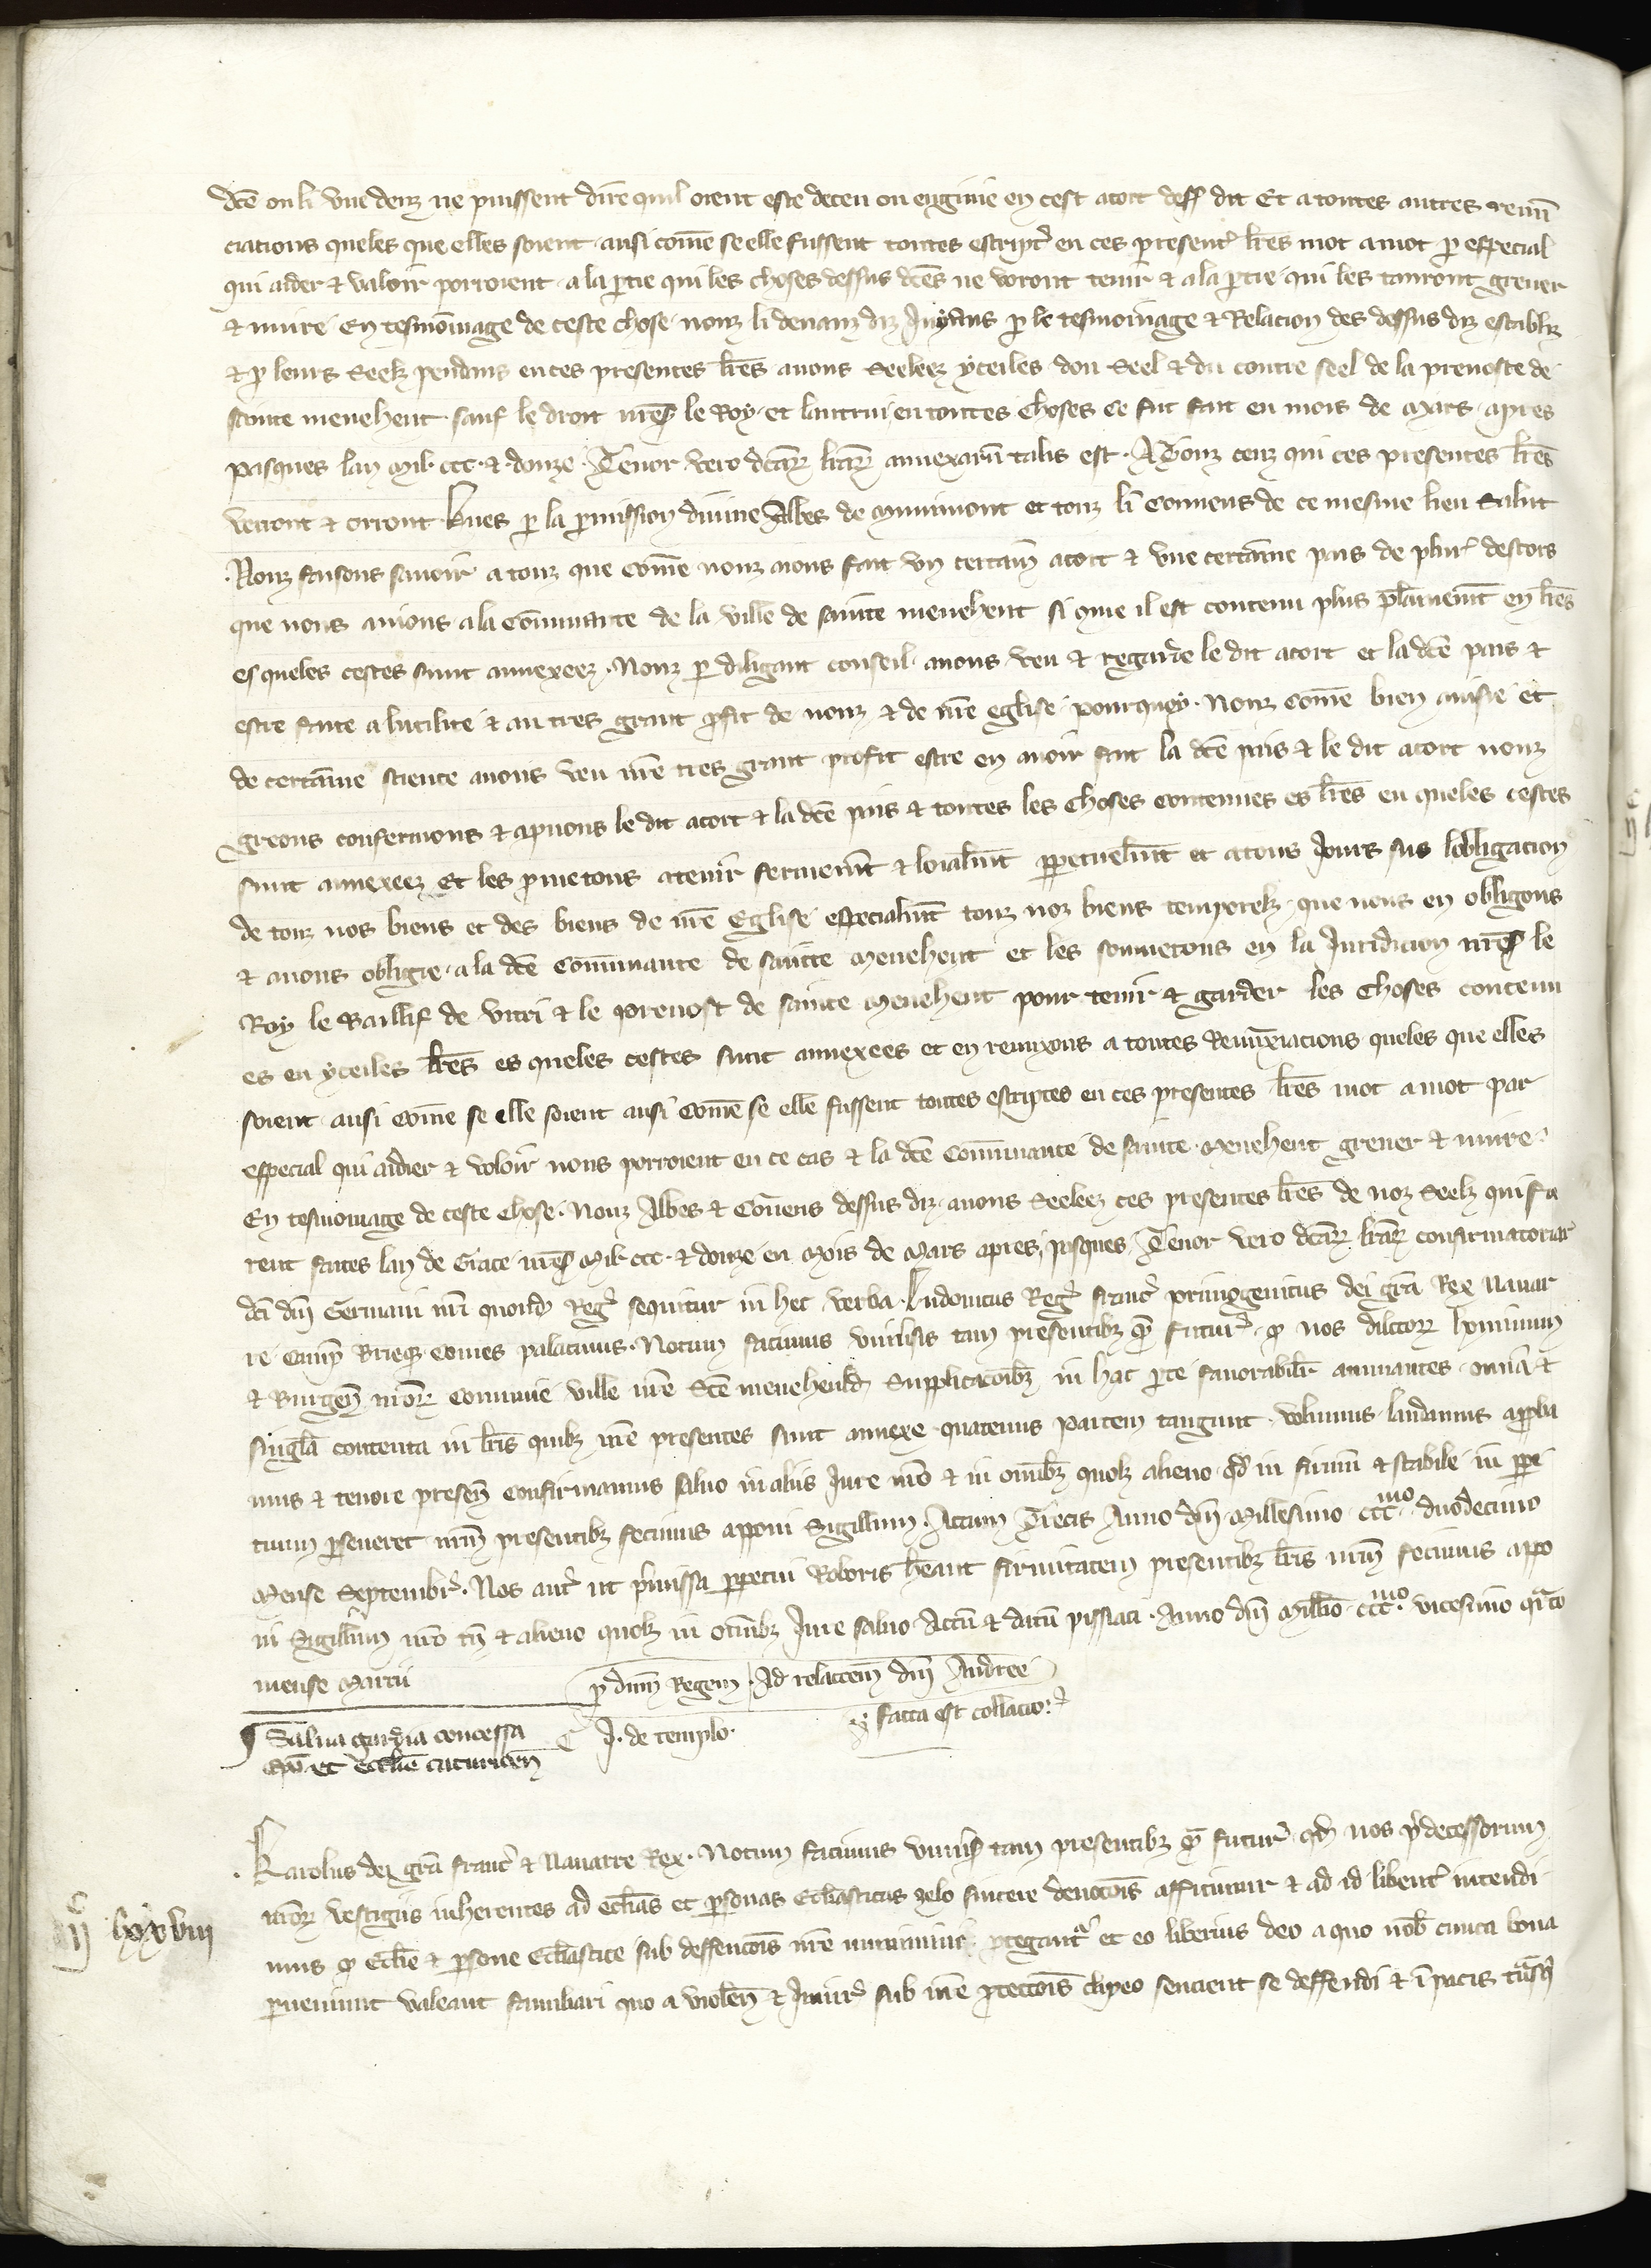 dc̄e ou li une deuz ne puissent dire quil oient este deceu ou engime en cest acort dess dit Et a toutes autres renū
ciacions queles que elles soient ausi com̄e se elle fussent toutes escript᷒ en ces present᷒ lr̄es mot a mot ꝑ especial
qui aider & valoir porroient a la ꝑtie qui les choses dessus dc̄es ne voront tenir & a la ꝑtie qui les tanront grever
& nuire En tesmoīnage de ceste chose nouz li devanz diz ꝑ le tesmoinage & Relacion des dessus diz establiz
& ꝑ leurs Seelz pendans en ces presentes lr̄es avons Seeleez yceiles dou Seel & du contre seel de la prevoste de
sainte menehout sauf le droit nr̄e le Roy et lautrui en toutes choses Ce fut fait en mois de Mars apres
pasques lan Mil ccc & douze Tenor vero dc̄aꝝ lr̄aꝝ annexarū talis est A Touz ceuz qui ces presentes lr̄es
verront & orront Hues ꝑ la ꝑmission divine Abbes de Muiremont et touz li Convens de ce mesme lieu Salut
Nouz faisons savoir a touz que com̄e nouz aions fait un certain acort & une certaine pais de plur᷒ descors
que nous avions a la Com̄unaute de la ville de sainte menehout si 9me il est contenu plus pl̄ainemt̄ en lr̄es
es queles cestes sunt annexeez Nouz ꝑ diligant conseil avons veu & regarde le dit acort et la dc̄e pais &
estre faite a lutilite & au tres grant ꝓfit de nouz & de nr̄e eglise pourquoy Nouz com̄e bien avisie et
de certaīne science avons veu nr̄e tres grant profit estre en avoir fait la dc̄e pais & le dit acort nouz
greons confermons & apvons le dit acort & la dc̄e pais & toutes les choses contenues es lr̄es en queles cestes
sunt annexeez Et les ꝓmetons a tenir fermemt̄ & loialmt̄ ꝑpetuelmt̄ et a tous jours sus lobligacion
de touz nos biens et des biens de nr̄e Eglise especialmt̄ touz noz biens temporelz que nous en obligons
& avons obligie a la dc̄e Com̄unaute de saincte Menehout et les soumetons en la Juridicion nr̄e le
Roy le Baillif de vitri & le prevost de sainte Menehout pour tenir & garder les choses contenu
es en yceiles lr̄es es queles cestes sunt annexees et en renuxons a toutes Renunciacions queles que elles
soient ausi com̄e se elle soient ausi com̄e se elle fussent toutes escriptes en ces presentes lr̄es mot a mot par
especial qui aidier & voloir nous porroient en ce cas & la dc̄e Com̄unaute de sainte Menehout grever & nuire
En tesmoinage de ceste chose Nouz Abbes & Coūens dessus diz avons Seeleez ces presentes lr̄es de noz Seelz qui fu
rent faites lan de Grace nr̄e Mil ccc & douze en Mois de Mars apres pasques Tenor vero dc̄aꝝ lr̄aꝝ confirmatoriaꝝ
dc̄i dn̄i Germani nr̄i quond̄ Reg᷒ sequitur in hec verba Ludovicus Reg᷒ franc᷒ primogenitus dei gr̄a Rex Navar
re Camp̄ Brieqꝫ Comes palatinus Notum facimus univ̄sis tam presentibꝫ qᷓm futur᷒ ꝙ nos dilctorꝝ hominum
& Burgen̄ nr̄orꝝ Communie ville nr̄e Sc̄e menehould Supplicacōibꝫ in hac ꝑte favorabilr̄ annuantes omīa &
singl̄a contenta in lr̄is quibꝫ nr̄e presentes sunt annexe quatenus partem tangunt volumus laudamus approba
mus & tenore presen̄ confirmamus salvo in aliis Jure nr̄o & in om̄ibꝫ quolꝫ alieno qd̄ ut firmū & stabile in ꝑpe
tuum ꝑseveret nr̄m presentibꝫ fecimus apponi Sigillum Actum Trecis Anno dn̄i Millesimo cccmo duodecimo
Mense Septembr᷒ Nos aut᷒ ut p̄missa ꝑpetui Roboris hēant firmitatem presentibꝫ lr̄is nr̄m fecimus appo
ni Sigillum nr̄o tn̄ & alieno quolꝫ in om̄ibꝫ Jure salvo Actū & datū pissiaci Anno dn̄i Mill̄io cccmo vicesimo q̄rto
mense Marcii
ꝑ dn̄m Regem Ad relacōem dn̄i Andree
J. de templo
facta est collacio
Salva gardia concessa
Ep̄o et Ecclie caturicen̄
Karolus dei gr̄a franc᷒ & Navarre Rex Notum facimus univ̄sis tam presentibꝫ qᷓm futur᷒ qd̄ nos p̄decessorum
nr̄orꝝ vestigiis inherentes ad ecl̄ias et ꝑsonas Ecl̄iasticas zelo sincere devocōis afficimur & ad id libent᷒ intendi
mus ꝙ Ecl̄ie & ꝑsone Ecl̄iastice sub deffencōis nr̄e munimine ꝓtegant᷒ et eo liberius deo a quo nob̄ cunca bona
ꝑveniunt valeant famulari quo a violen̄ & Jniur᷒ sub nr̄e ꝓteccōis clipeo sencient se deffendi & ī pacis
iic lxxviii